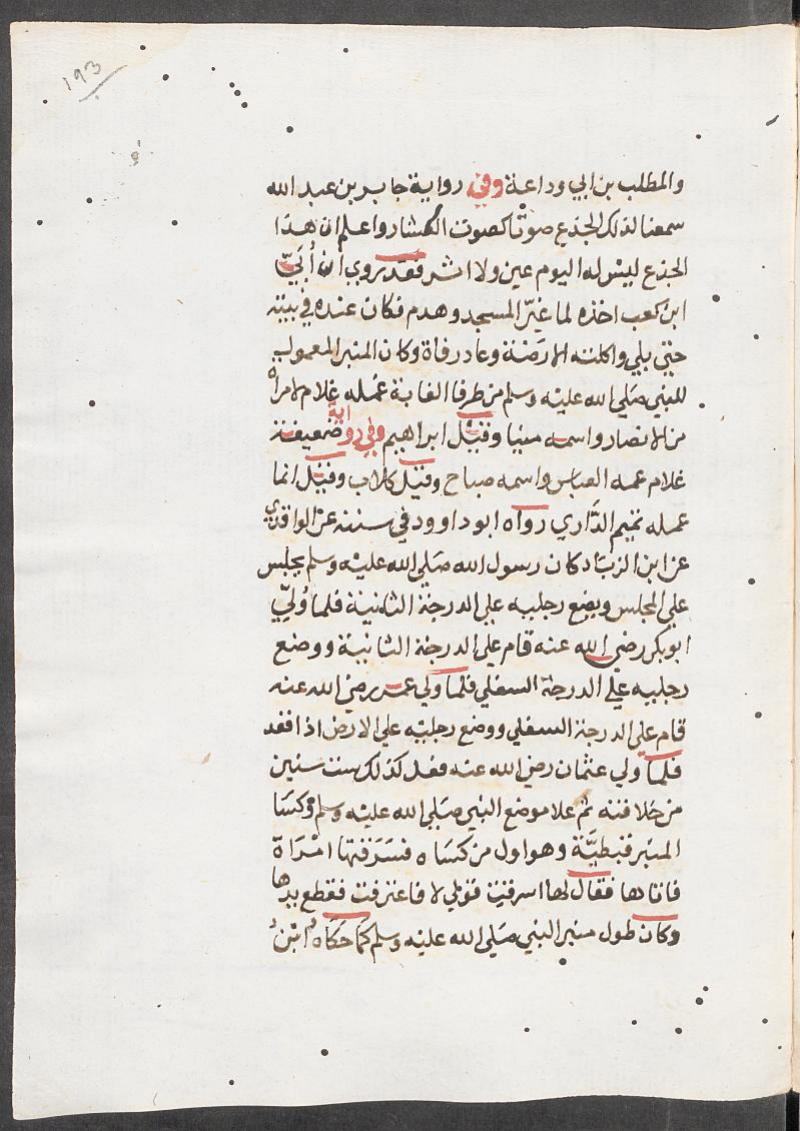 ١٩٣
والمطلب بن ابي وداعة وفي رواية جابر بن عبد الله
سمعنا لذلك الجذع صوتا كصوت العشار واعلم ان هذا
الجذع ليس له اليوم عين ولا اثر فقد روي ان أُبَيّ
ابن كعب اخذه لما غيّر المسجد وهدم فكان عنده في بيته
حتي بلي واكلته الارضة وعاد رفاة وكان المنبر المعمول
للنبي صَلي الله عليه وسلم من طرفا الغابة عمله غلام لامراه
من الانصار واسمه مينا وقيل ابراهيم وفي رواية ضعيفة
غلام عمه العباس واسمه صباح وقيل كلاب وقيل انما
عمله تميم الدَّاري رواه ابو داوود في سننه عن الواقدي
عن ابن الزناد كان رسول الله صَلي الله عليه وسلم يجلس
علي المجلس ويضع رجليه علي الدرجة الثانية فلما وُلّي
ابو بكر رضي الله عنه قام علي الدرجة الثانية ووضع
رجليه علي الدرجة السفلي فلما ولي عمر رضي الله عنه
قام علي الدرجة السفلي ووضع رجليه علي الارض اذا قعد
فلما ولي عثمان رضي الله عنه فعل كذلك ست سنين
من خلافته ثم علا موضع النبي صَلي الله عليه وسلم وكسَا
المنبر قبطيَّة وهو اول من كسَاه فسَرَقتها امْرَاة
فاتا بها فقال لها اسرقتِ قولي لا فاعترفت فقطع يدها
وكان طول منبر النبي صَلي الله عليه وسلم كمَا حكَاه ابْن